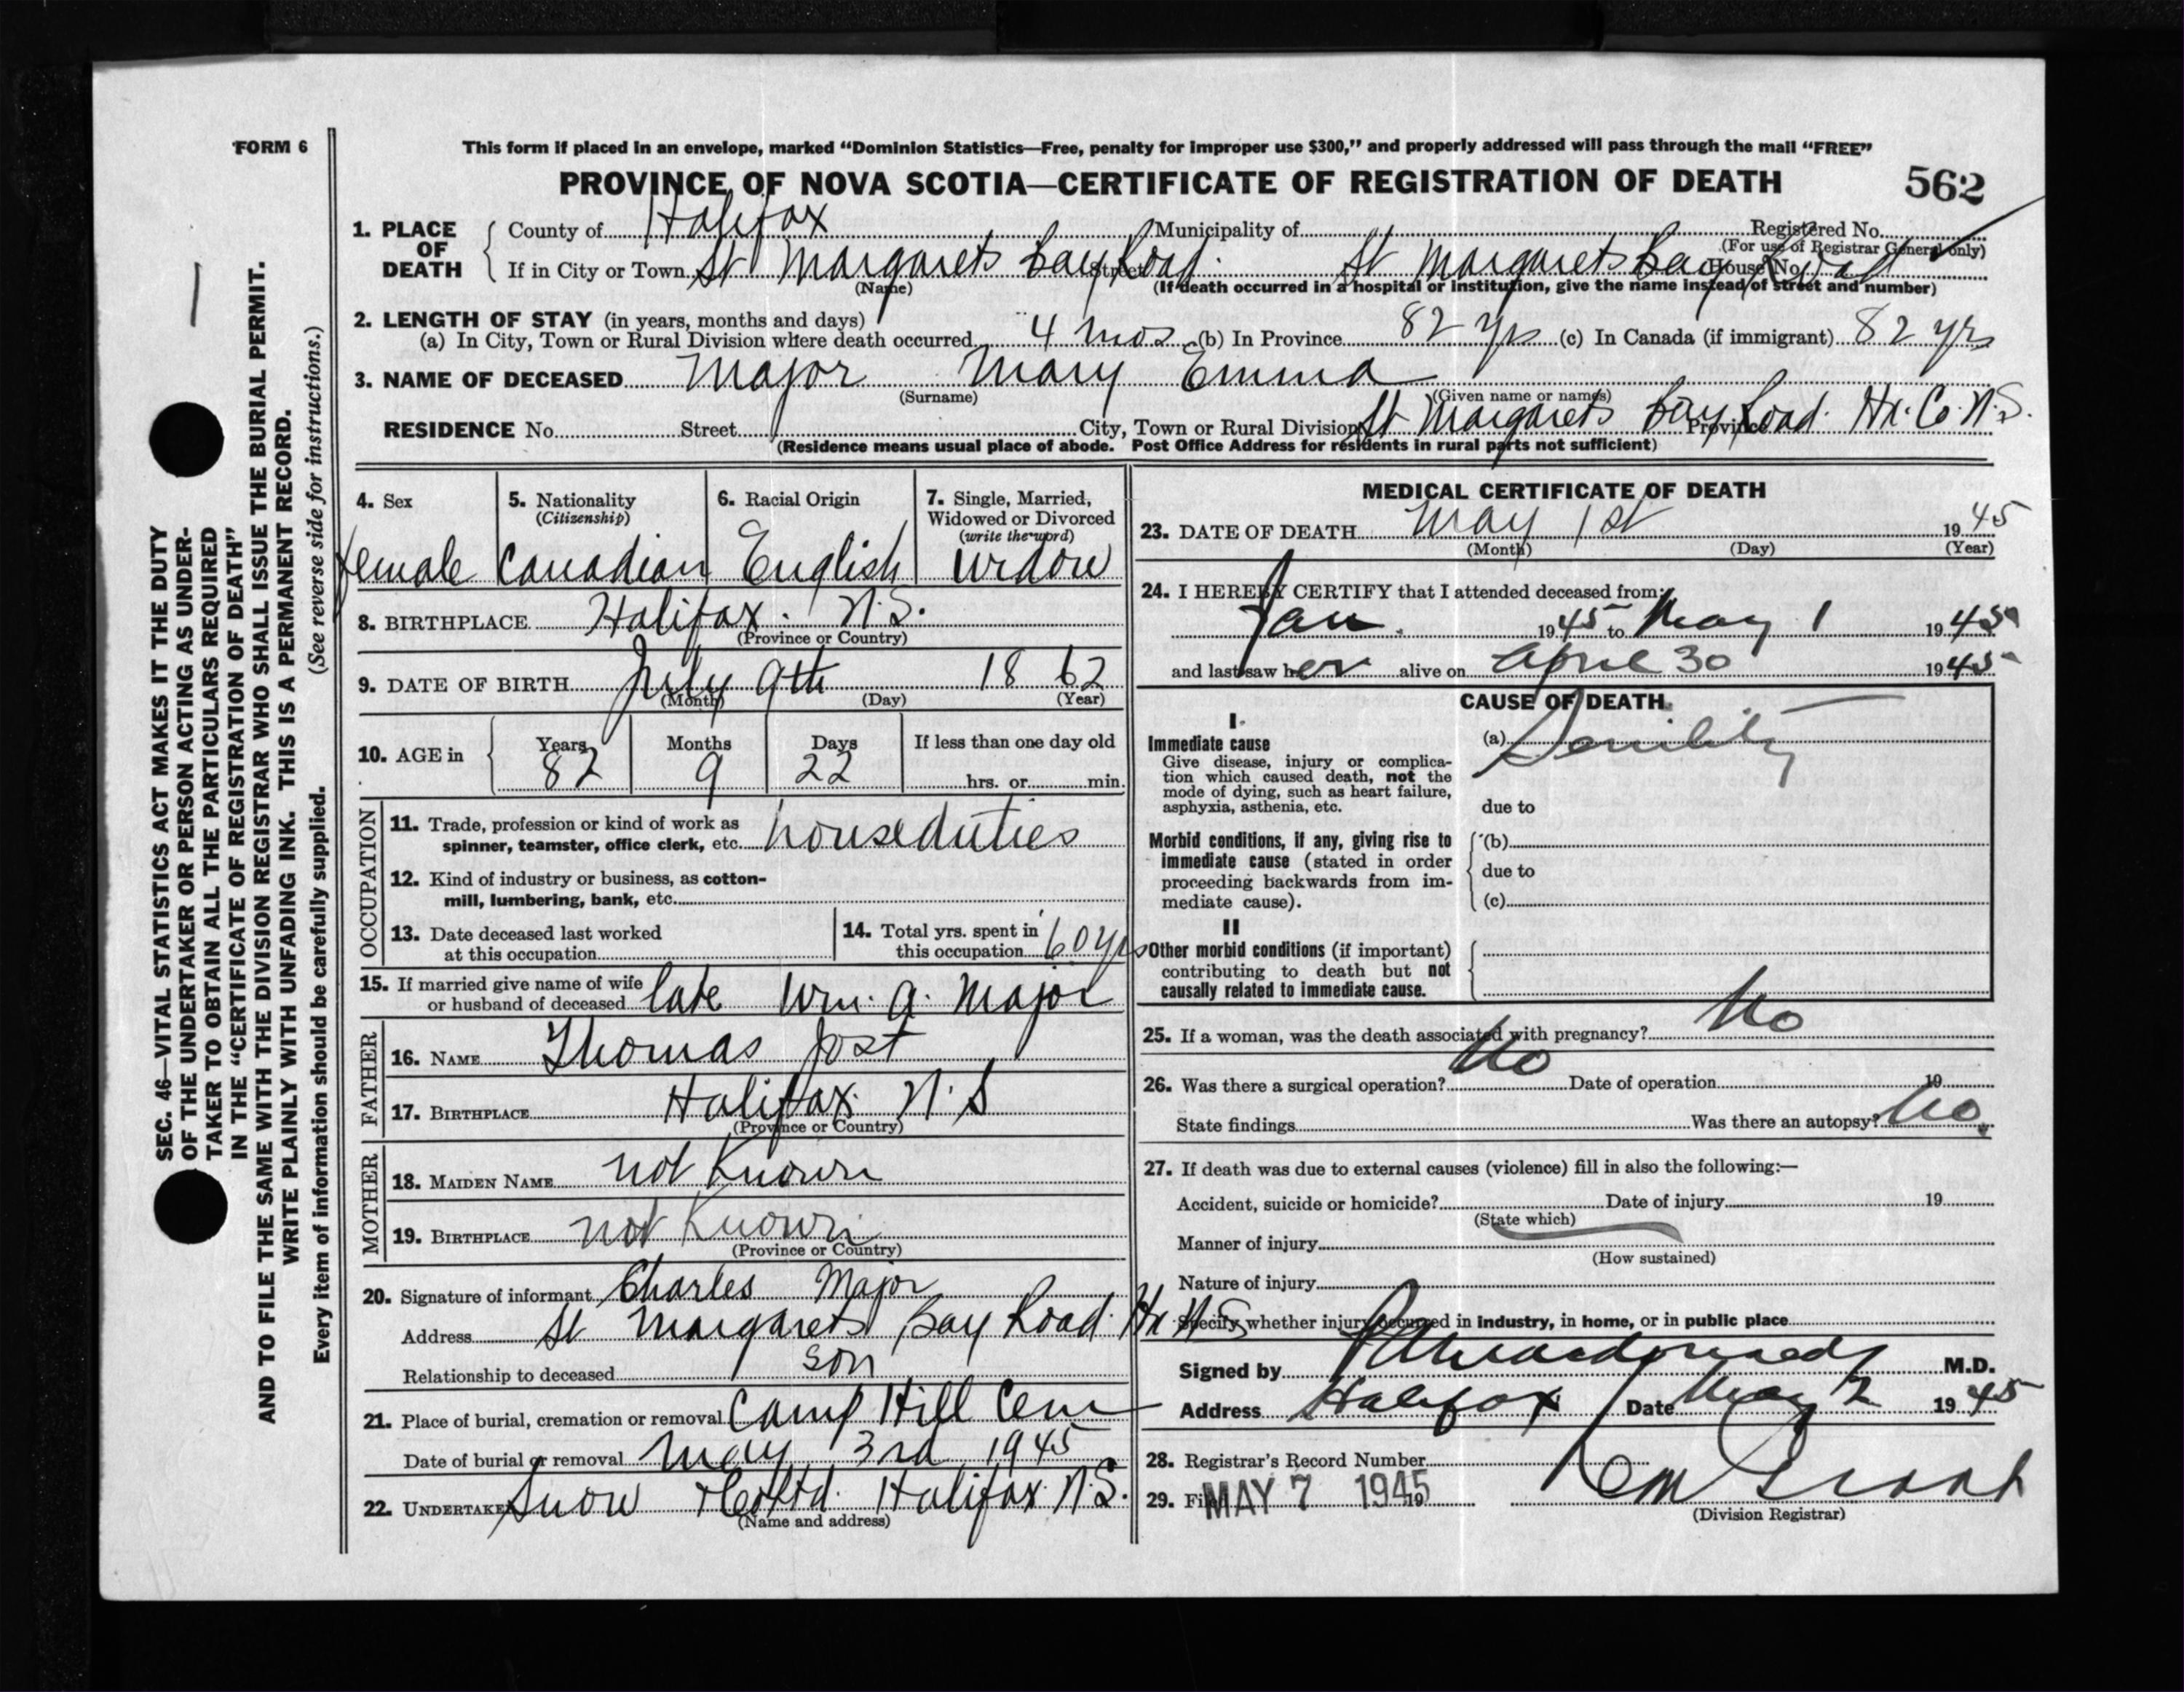 FORM 6
This form if placed in an envelope, marked “Dominion Statistics—Free, penalty for improper use $300,” and properly addressed will pass through the mail “FREE”
PROVINCE OF NOVA SCOTIA—CERTIFICATE OF REGISTRATION OF DEATH
562
1. PLACE OF DEATH
County of Halifax Municipality of Registered No.
(For use of Registrar General only)
If in City or Town St Margarets Bay Road. Street St Margarets Bay Road House No.
(Name) (If death occurred in a hospital or institution, give the name instead of street and number)
2. LENGTH OF STAY (in years, months and days)
(a) In City, Town or Rural Division where death occurred 4 mos (b) In Province 82 yrs (c) In Canada (if immigrant) 82 yrs
3. NAME OF DECEASED Major Mary Emma
(Surname) (Given name or names)
RESIDENCE No. Street City, Town or Rural Division St Margarets Bay Road. Hx. Co. N.S. Province
(Residence means usual place of abode. Post Office Address for residents in rural parts not sufficient)
4. Sex
female
5. Nationality
(Citizenship)
Canadian
6. Racial Origin
English
7. Single, Married,
Widowed or Divorced
(write the word)
widow
8. BIRTHPLACE Halifax. N.S.
(Province or Country)
9. DATE OF BIRTH July 9th 1862
(Month) (Day) (Year)
10. AGE in
Years Months Days If less than one day old
82 9 22 hrs. or min.
OCCUPATION
11. Trade, profession or kind of work as
spinner, teamster, office clerk, etc. houseduties
12. Kind of industry or business, as cotton-
mill, lumbering, bank, etc.
13. Date deceased last worked
at this occupation
14. Total yrs. spent in
this occupation 60 yrs
15. If married give name of wife
or husband of deceased late Wm. A. Major
FATHER
16. NAME Thomas Jost
17. BIRTHPLACE Halifax. N.S
(Province or Country)
MOTHER
18. MAIDEN NAME not Known
19. BIRTHPLACE not Known
(Province or Country)
20. Signature of informant Charles Major
Address St Margarets Bay Road. Hx N.S.
Relationship to deceased son
21. Place of burial, cremation or removal Camp Hill Cem
Date of burial or removal May 3rd 1945
22. UNDERTAKER Snow & Co Ltd. Halifax N.S.
(Name and address)
MEDICAL CERTIFICATE OF DEATH
23. DATE OF DEATH May 1st 1945
(Month) (Day) (Year)
24. I HEREBY CERTIFY that I attended deceased from:
Jan. 1945 to May 1 1945
and last saw her alive on April 30 1945
CAUSE OF DEATH
I.
Immediate cause
Give disease, injury or complica-
tion which caused death, not the
mode of dying, such as heart failure,
asphyxia, asthenia, etc.
(a) Senility
due to
Morbid conditions, if any, giving rise to
immediate cause (stated in order
proceeding backwards from im-
mediate cause).
(b)
due to
(c)
II
Other morbid conditions (if important)
contributing to death but not
causally related to immediate cause.
25. If a woman, was the death associated with pregnancy? No
26. Was there a surgical operation? No Date of operation 19
State findings Was there an autopsy? No.
27. If death was due to external causes (violence) fill in also the following:—
Accident, suicide or homicide? Date of injury 19
(State which)
Manner of injury
(How sustained)
Nature of injury
Specify whether injury occurred in industry, in home, or in public place
Signed by M.D.
Address Halifax Date May 2 1945
28. Registrar's Record Number
29. Filed MAY 7 1945 19
(Division Registrar)
SEC. 46—VITAL STATISTICS ACT MAKES IT THE DUTY
OF THE UNDERTAKER OR PERSON ACTING AS UNDER-
TAKER TO OBTAIN ALL THE PARTICULARS REQUIRED
IN THE “CERTIFICATE OF REGISTRATION OF DEATH”
AND TO FILE THE SAME WITH THE DIVISION REGISTRAR WHO SHALL ISSUE THE BURIAL PERMIT.
WRITE PLAINLY WITH UNFADING INK. THIS IS A PERMANENT RECORD.
Every item of information should be carefully supplied. (See reverse side for instructions.)